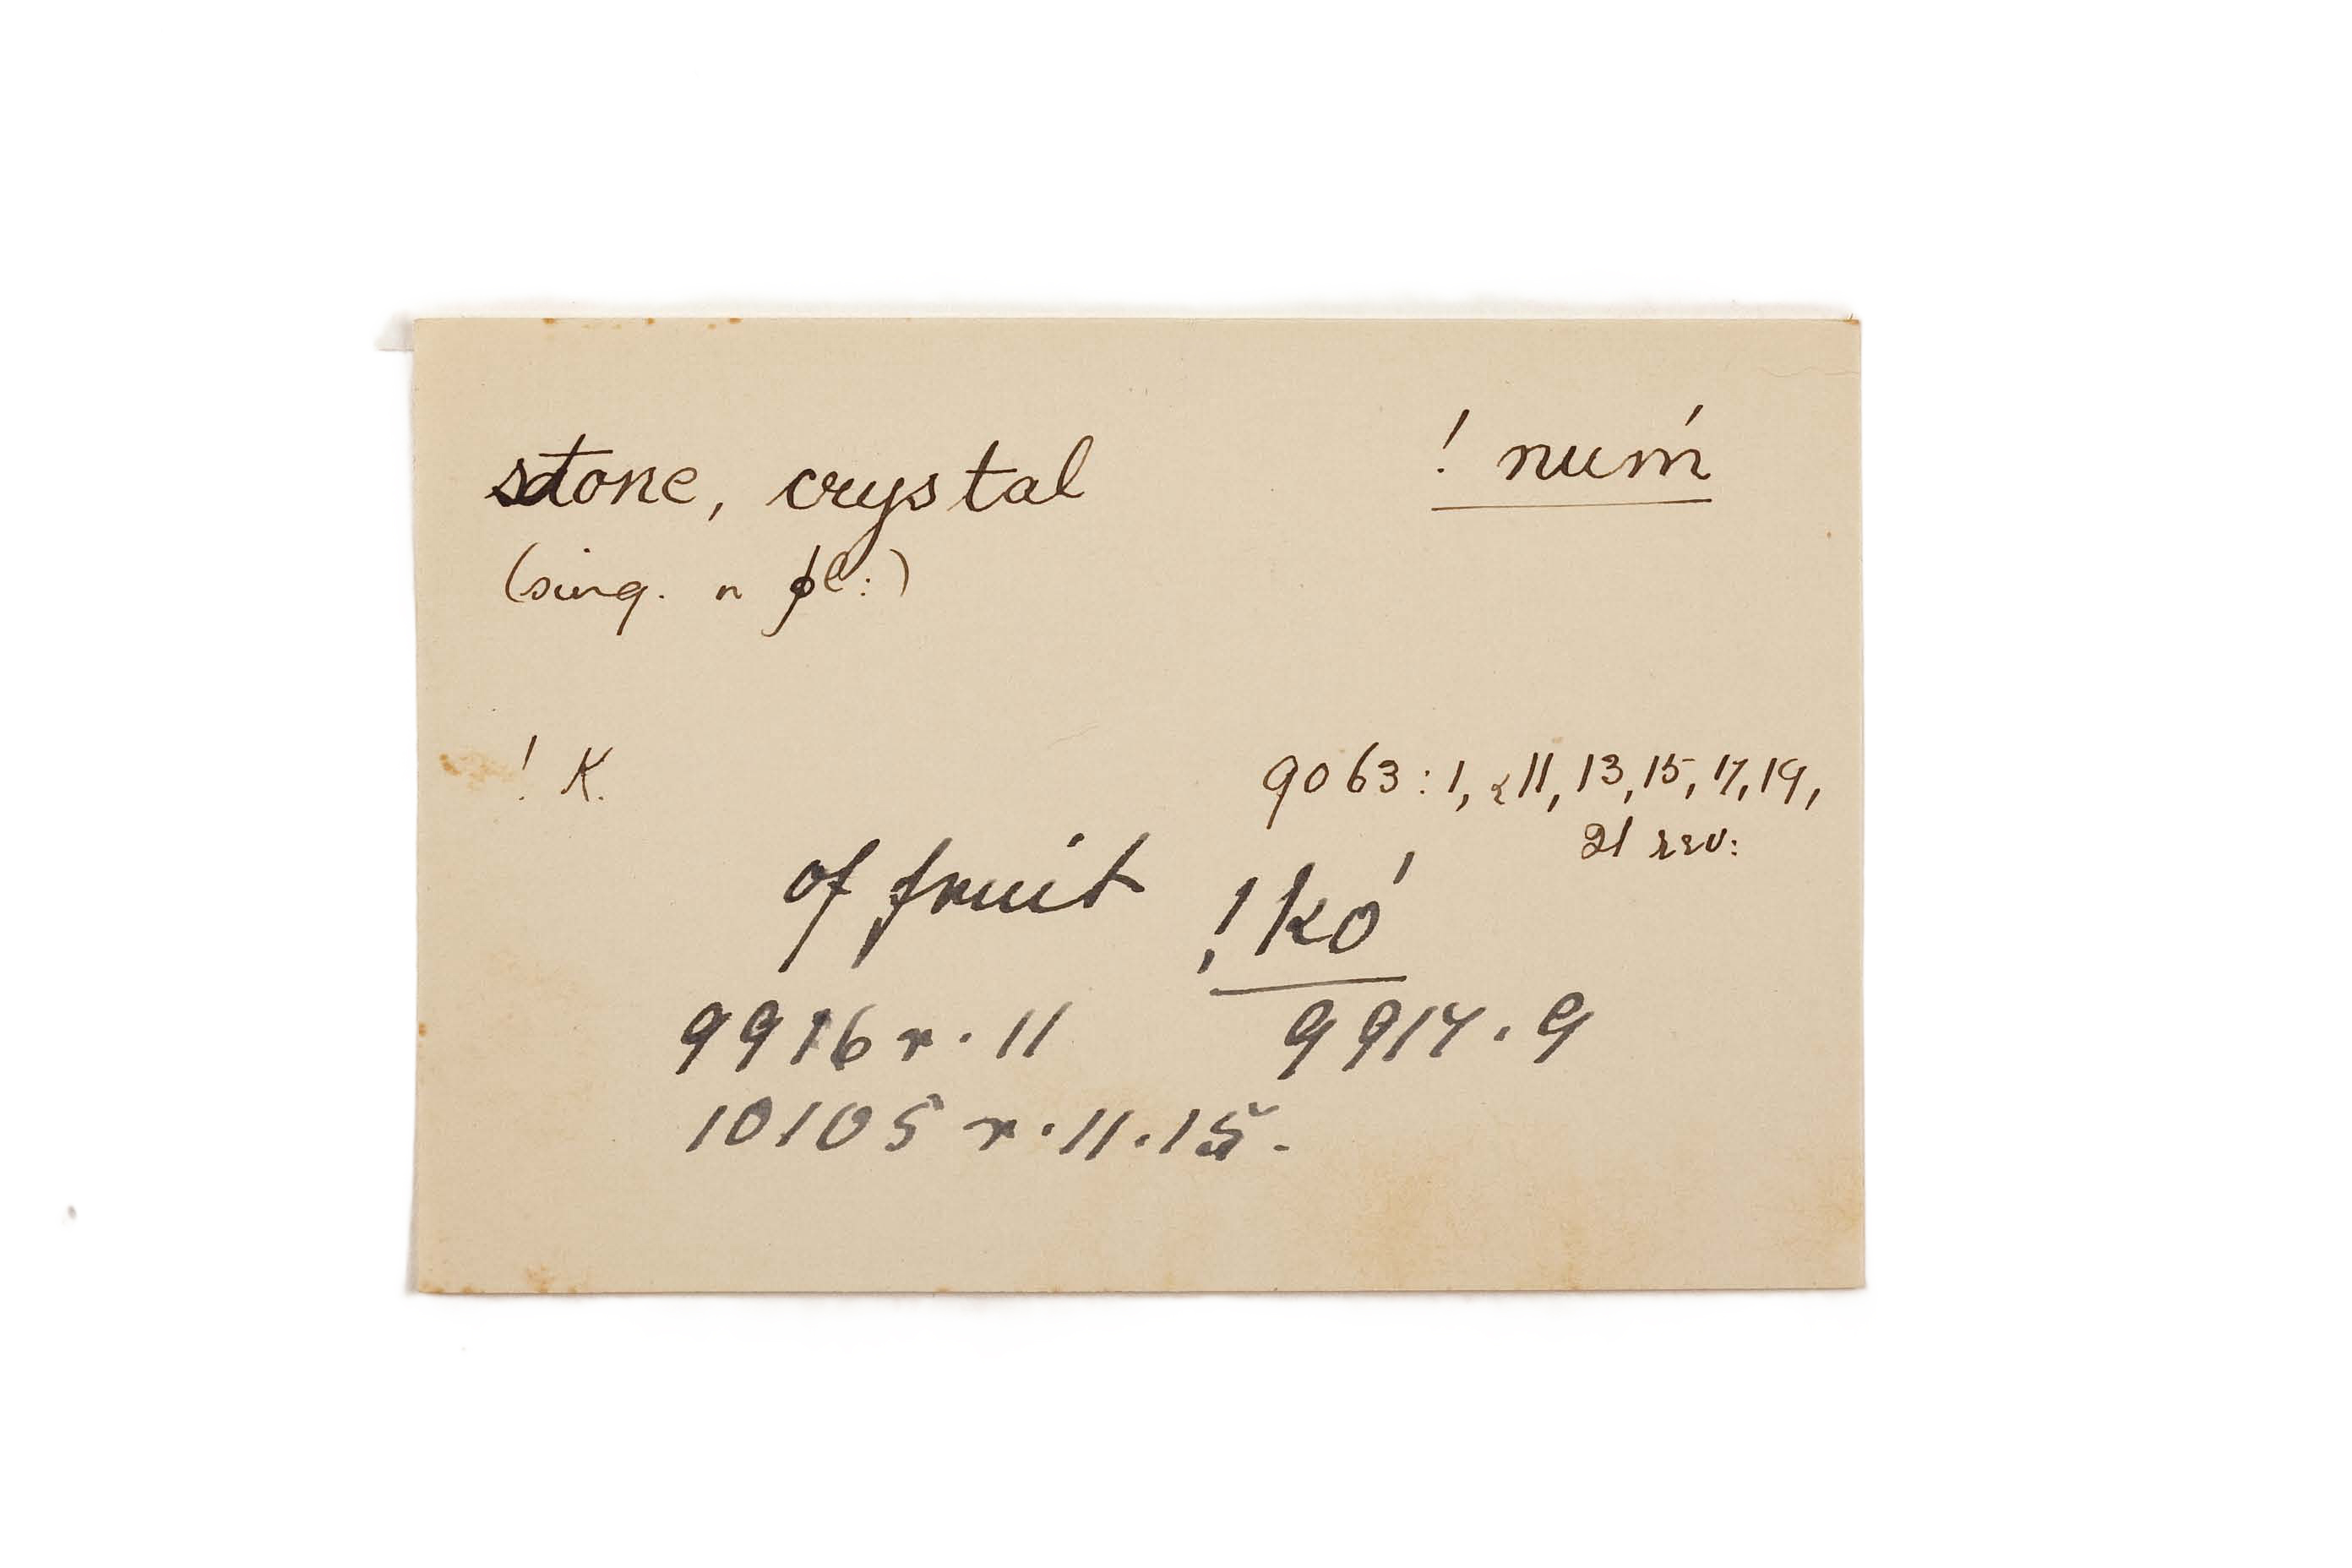 stone, crystal ! nuḿ
(sing. n pl:)
! K. 9063:1, &11, 13, 15, 17, 19,
21 rev:
of fruit !kó
9916 r. 11 9917. 9
10105 r. 11. 15.